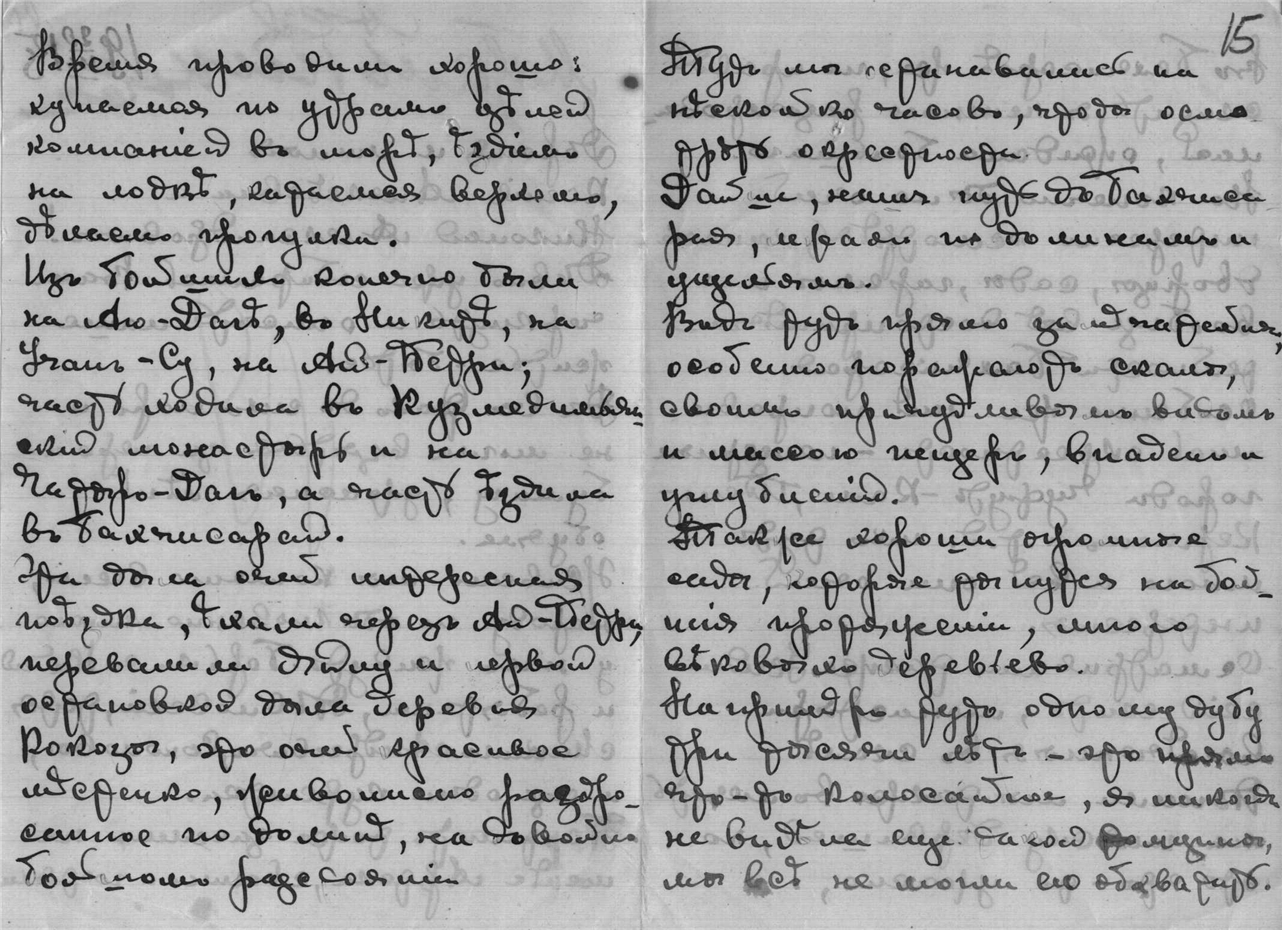 Время проводимъ хорошо:
купаемся по утрамъ цѣлой
компаніей въ морѣ, ѣздимъ
на лодкѣ, катаемся верхомъ,
дѣлаемъ прогулки.
Изъ большихъ конечно были
на Аю-Дагѣ, въ Никитѣ, на
Учанъ-Су, на Ай-Петри;
часть ходила въ Кузмедимьян-
скій монастырь и на
Чатыръ-Дагъ, а часть ѣздила
въ Бахчисарай.
Эта была очень интересная
поѣздка, ѣхали черезъ Ай-Петри,
перевалили Яйлу и первой
остановкой была деревня
Кокозы, это очень красивое
мѣстечко, живописно разбро-
санное по долинѣ, на довольно
большомъ разстояніи
15
Тутъ мы останавливались на
нѣсколько часовъ, чтобы осмо
трѣть окрестности.
Дальше, нашъ путь до Бахчиса
рая, игралъ по долинамъ и
ущельямъ.
Видъ тутъ прямо замѣчательны,
особенно поражаютъ скалы,
своимъ причудливымъ видомъ
и массою пещеръ, впадинъ и
углубленій.
Также хороши огромные
сады, которые тянутся на боль-
шія протяженіи, много
вѣковыхъ деревьевъ.
Напримѣръ тутъ одному дубу
три тысячи лѣтъ - это прямо
что-то колосальное, я никогда
не видѣла еще такой толщины,
мы всѣ не могли его обхватить.